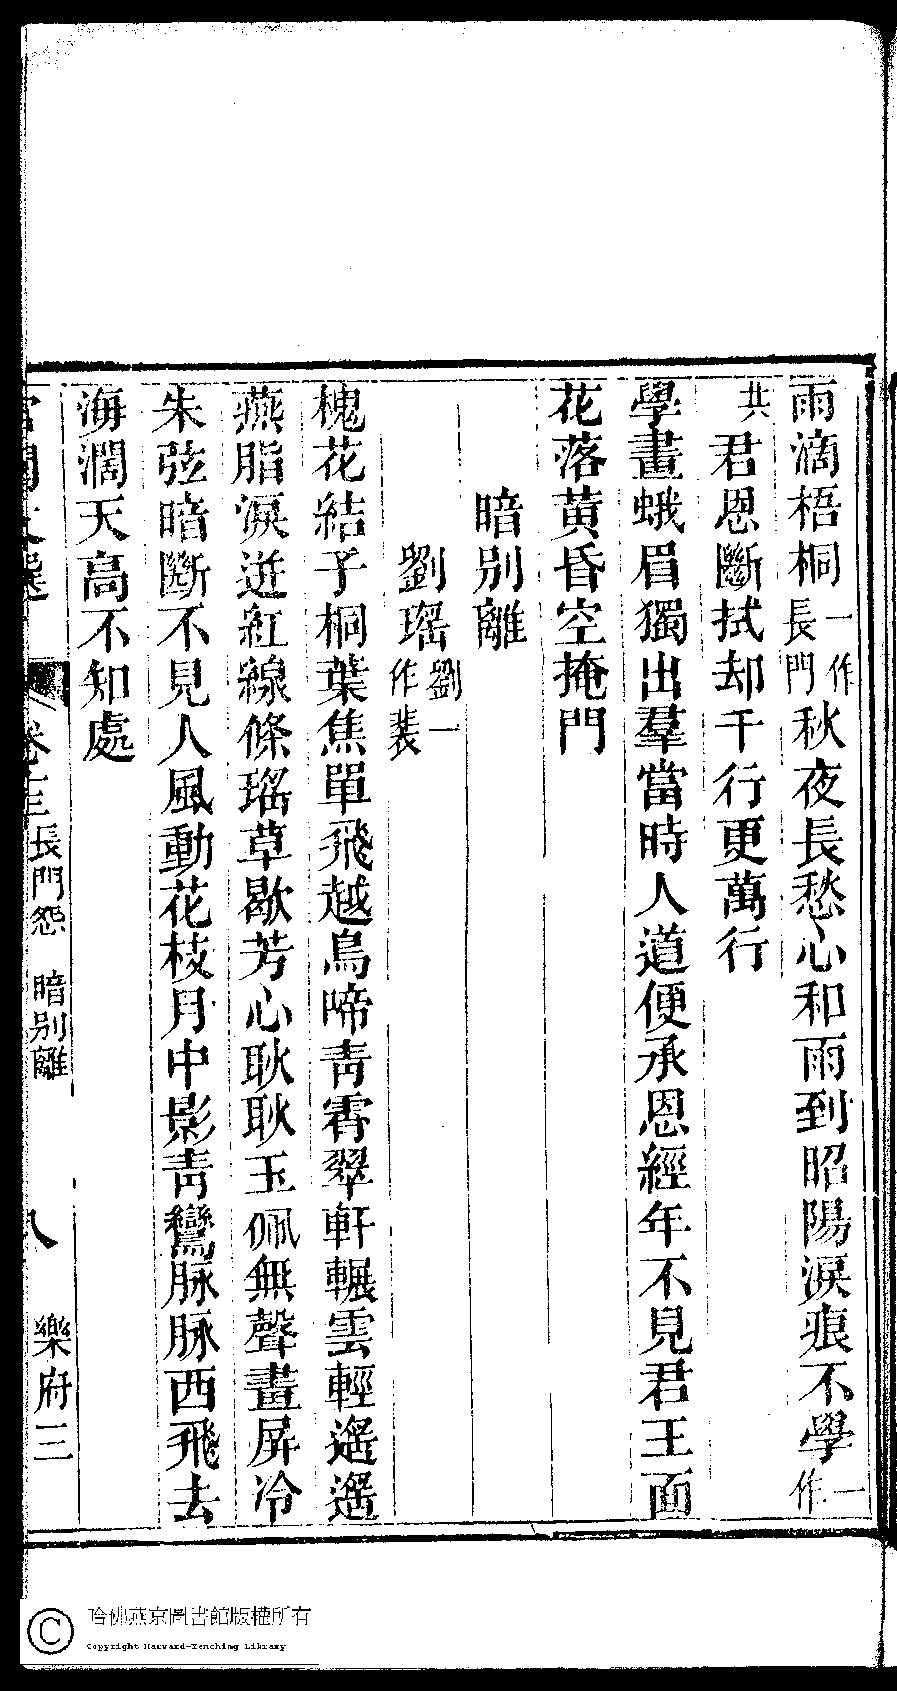 雨滴梧桐一作長門秋夜長愁心和雨到昭陽淚痕不學一作
共君恩斷拭却千行更萬行
學畫蛾眉獨出羣當時人道便承恩經年不見君王面
花落黄昏空掩門
暗别離
劉瑶劉一作裴
槐花結子桐葉焦單飛越鳥啼青霄翠軒輾雲輕遥遥
燕脂淚迸紅線條瑤草歇芳心耿耿玉佩無聲畫屏冷
朱弦暗斷不見人風動花枝月中影青鸞脉脉西飛去
海濶天高不知處
卷十三 長門怨 暗别離 八 樂府三
哈佛燕京圖書館版權所有
Copyright Harvard-Yenching Library